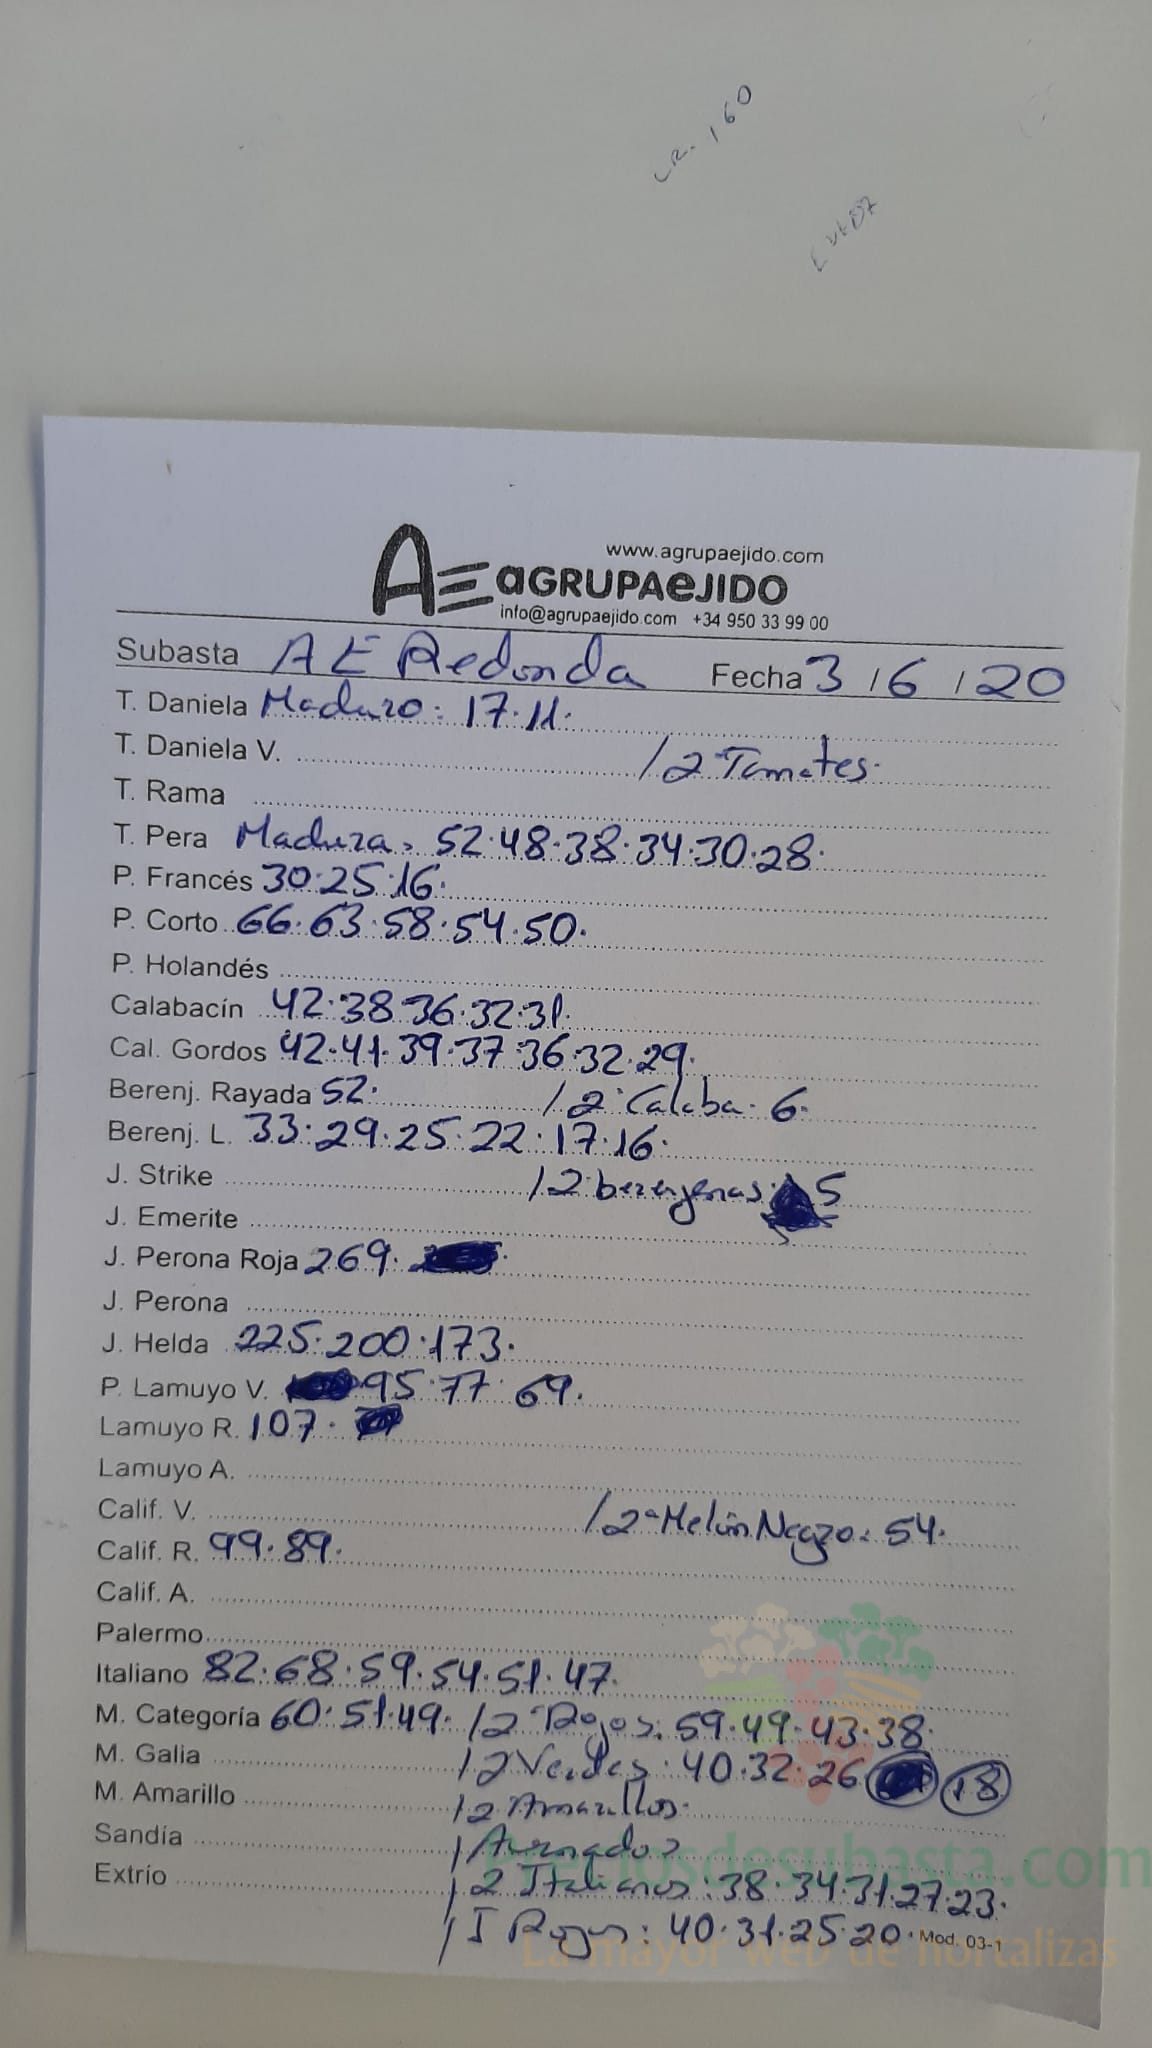 LR. 160
www.agrupaejido.com
AE aGRUPAeJIDO
info@agrupaejido.com +34 950 33 99 00
Subasta AE Redonda Fecha 3/6/20
T. Daniela Maduro: 17.11.
T. Daniela V. /2ª Tomates.
T. Rama
T. Pera Madura. 52.48.38.34.30.28.
P. Francés 30.25.16.
P. Corto 66.63.58.54.50.
P. Holandés
Calabacín 42.38.36.32.31.
Cal. Gordos 42.41.39.37.36.32.29.
Berenj. Rayada 52. /2ª Calaba. 6.
Berenj. L. 33.29.25.22.17.16.
J. Strike /2 berenjenas. 5
J. Emerite
J. Perona Roja 269.
J. Perona
J. Helda 225.200.173.
P. Lamuyo V. 95.77.69.
Lamuyo R. 107.
Lamuyo A.
Calif. V. /2ª Melón Negro: 54.
Calif. R. 99.89.
Calif. A.
Palermo
Italiano 82.68.59.54.51.47.
M. Categoría 60.51.49. /2ª Rojos: 59.49.43.38.
M. Galia /2 Verdes: 40.32.26 18
M. Amarillo /2 Amarillos.
Sandía / Asurnados
Extrío /2 Italianos: 38.34.31.27.23.
/ I Rojos: 40.31.25.20. Mod. 03-1
Preciosdesubasta.com
La mayor web de hortalizas